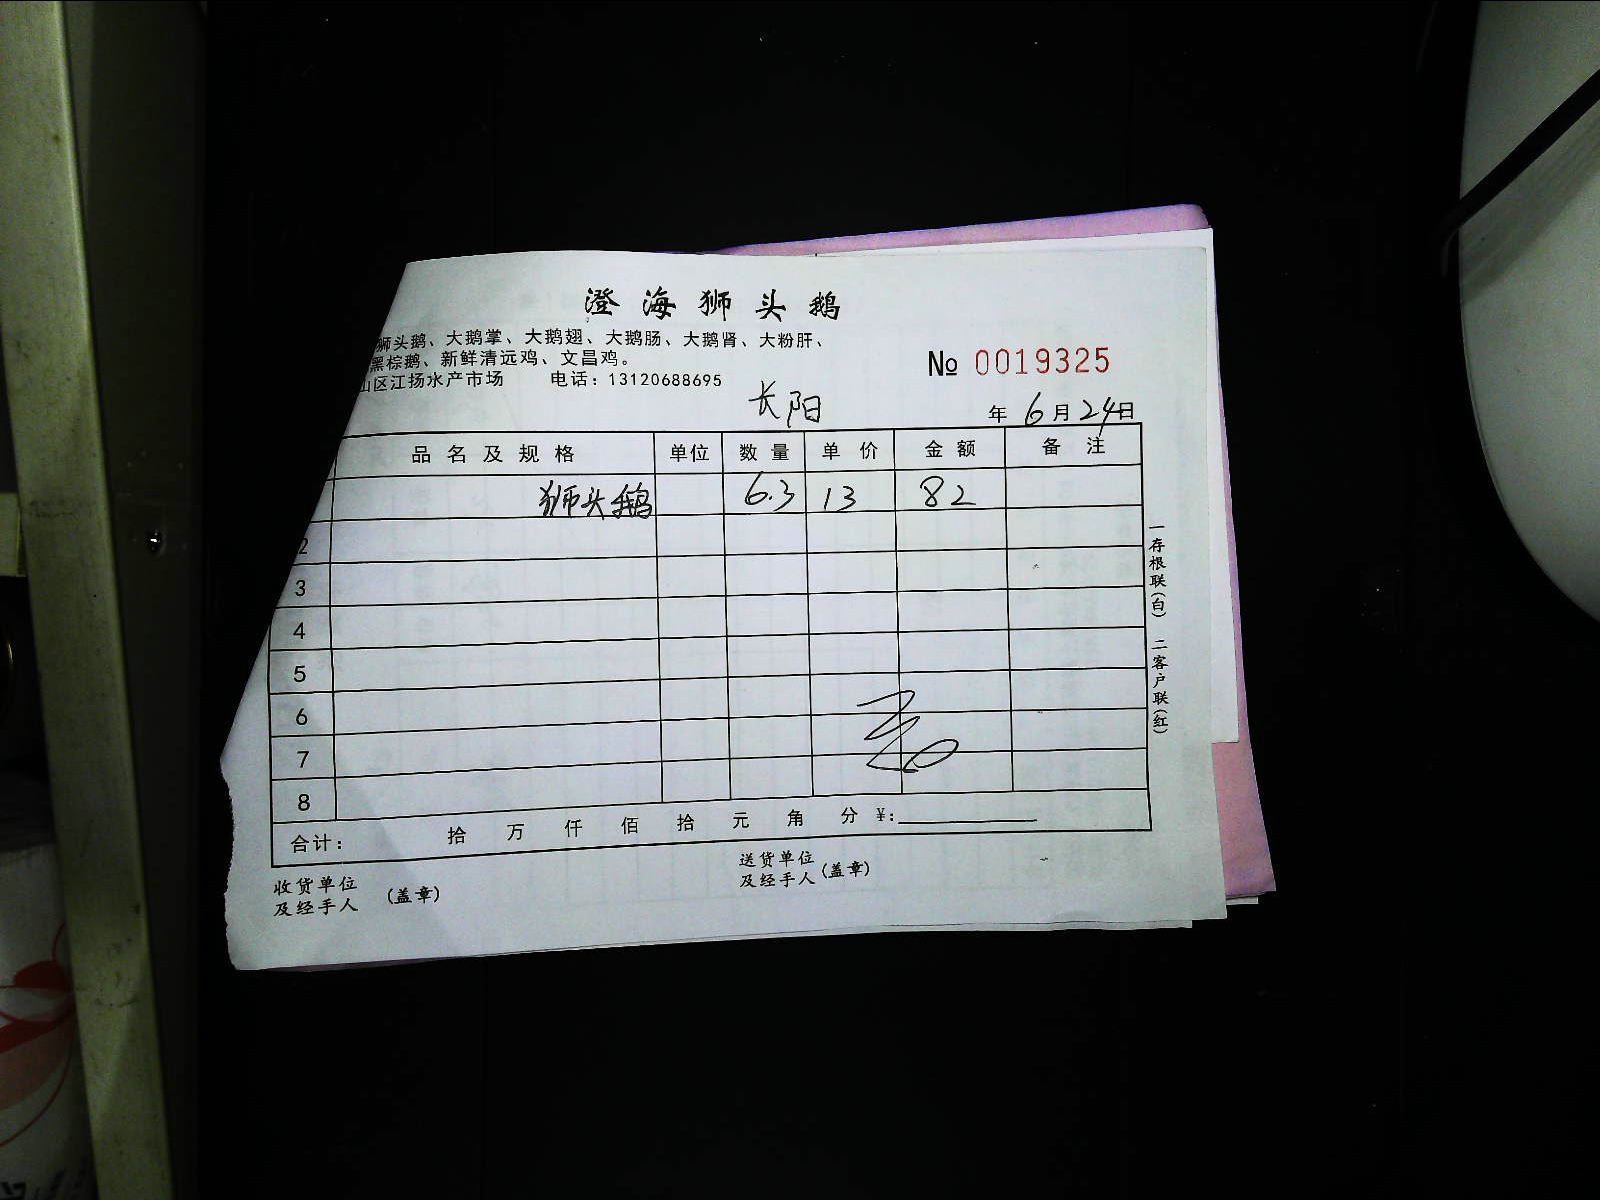 澄海狮头鹅
狮头鹅、大鹅掌、大鹅翅、大鹅肠、大鹅肾、大粉肝、
黑棕鹅、新鲜清远鸡、文昌鸡。
山区江扬水产市场 电话：13120688695
№ 0019325
长阳
年 6月24日
品名及规格 单位 数量 单价 金额 备注
狮头鹅 6.3 13 82
2
3
4
5
6
7
8
合计： 拾 万 仟 佰 拾 元 角 分 ¥:
收货单位
及经手人 (盖章)
送货单位
及经手人 (盖章)
一存根联(白) 二客户联(红)